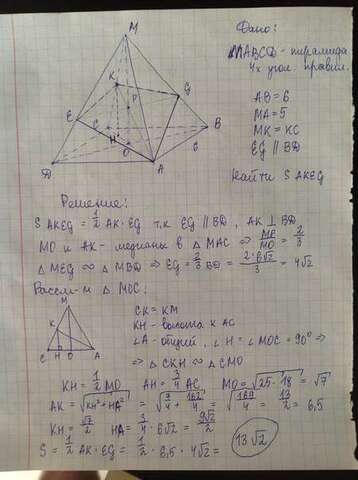 Дано:
MABCD - пирамида
4х угол. правил.
AB = 6
MA = 5
MK = KC
EG || BD
Найти S AKEG
M
K
G
P
E
C
B
H
O
6
D
A
Решение:
S AKEG = 1/2 AK·EG т.к EG || BD, AK ⊥ BD
MO и AK - медианы в △ MAC ⇒ MP/MO = 2/3
△ MEG ∞ △ MBD ⇒ EG = 2/3 BD = 2·6√2/3 = 4√2
Рассм-м △ MOC:
M
K
C H O A
CK = KM
KH - высота к AC
∠A - общий, ∠H = ∠MOC = 90° ⇒
⇒ △ CKH ∞ △ CMO
KH = 1/2 MO AH = 3/4 AC MO = √25-18 = √7
AK = √KH²+HA² = √7/4 + 162/4 = √169/4 = 13/2 = 6,5
KH = √7/2 HA = 3/4 · 6√2 = 9√2/2
S = 1/2 AK·EG = 1/2 · 6,5 · 4√2 =
13√2